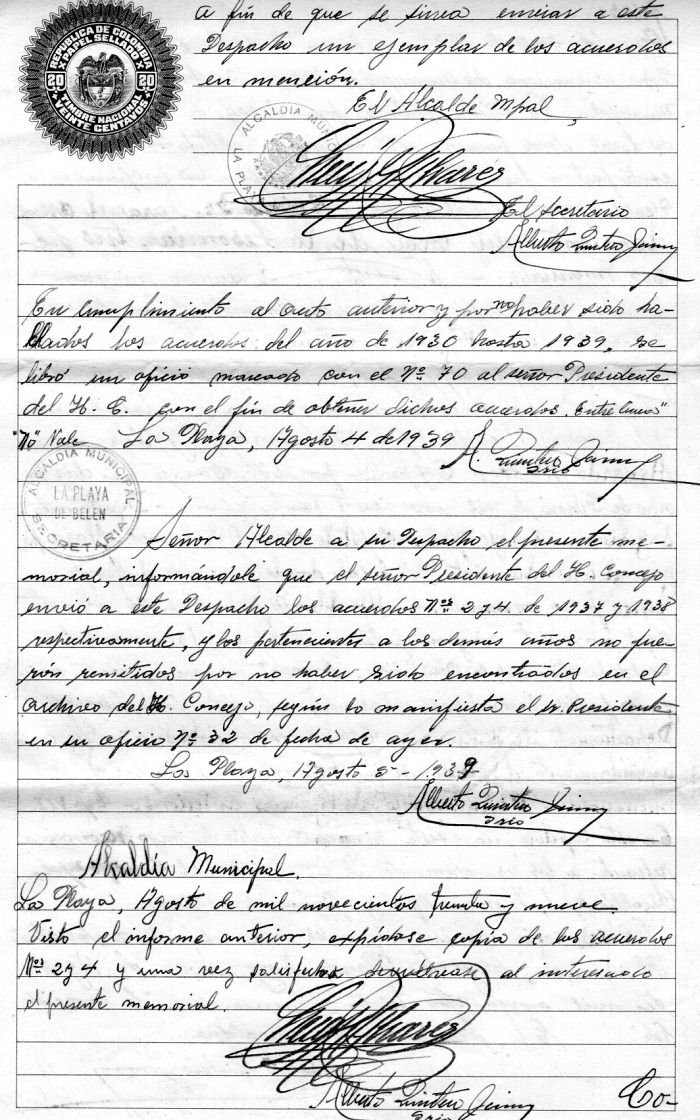 REPUBLICA DE COLOMBIA
PAPEL SELLADO
20 20
TIMBRE NACIONAL
VEINTE CENTAVOS
a fin de que se sirva enviar a este
Despacho un ejemplar de los acuerdos
en mención.
El Alcalde Mpal,
ALCALDIA MUNICIPAL
LA PLAYA
El Secretario
Alberto Quintero
En cumplimiento al auto anterior y por no haber sido ha-
llados los acuerdos del año de 1930 hasta 1939, se
libró un oficio marcado con el Nº 70 al señor Presidente
del H. C. con el fin de obtener dichos acuerdos. Entre lineas"
"No" Vale La Playa, Agosto 4 de 1939
A. Quintero
Srio
ALCALDIA MUNICIPAL
LA PLAYA
DE BELEN
SECRETARIA
Señor Alcalde a su Despacho el presente me-
morial, informándole que el señor Presidente del H. Concejo
envió a este Despacho los acuerdos Nos 2 y 4 de 1937 y 1938
respectivamente, y los pertenecientes a los demás años no fue-
rón remitidos por no haber sido encontrados en el
archivo del H. Concejo, según lo manifiesta el sr. Presidente
en su oficio Nº 32 de fecha de ayer.
La Playa, Agosto 5 - 1939
Alberto Quintero
Srio
Alcaldía Municipal.
La Playa, Agosto de mil novecientos treinta y nueve.
Visto el informe anterior, expídase copia de los acuerdos
Nos 2 y 4 y una vez satisfecha al interesado
el presente memorial.
Alberto Quintero
Srio
Co-